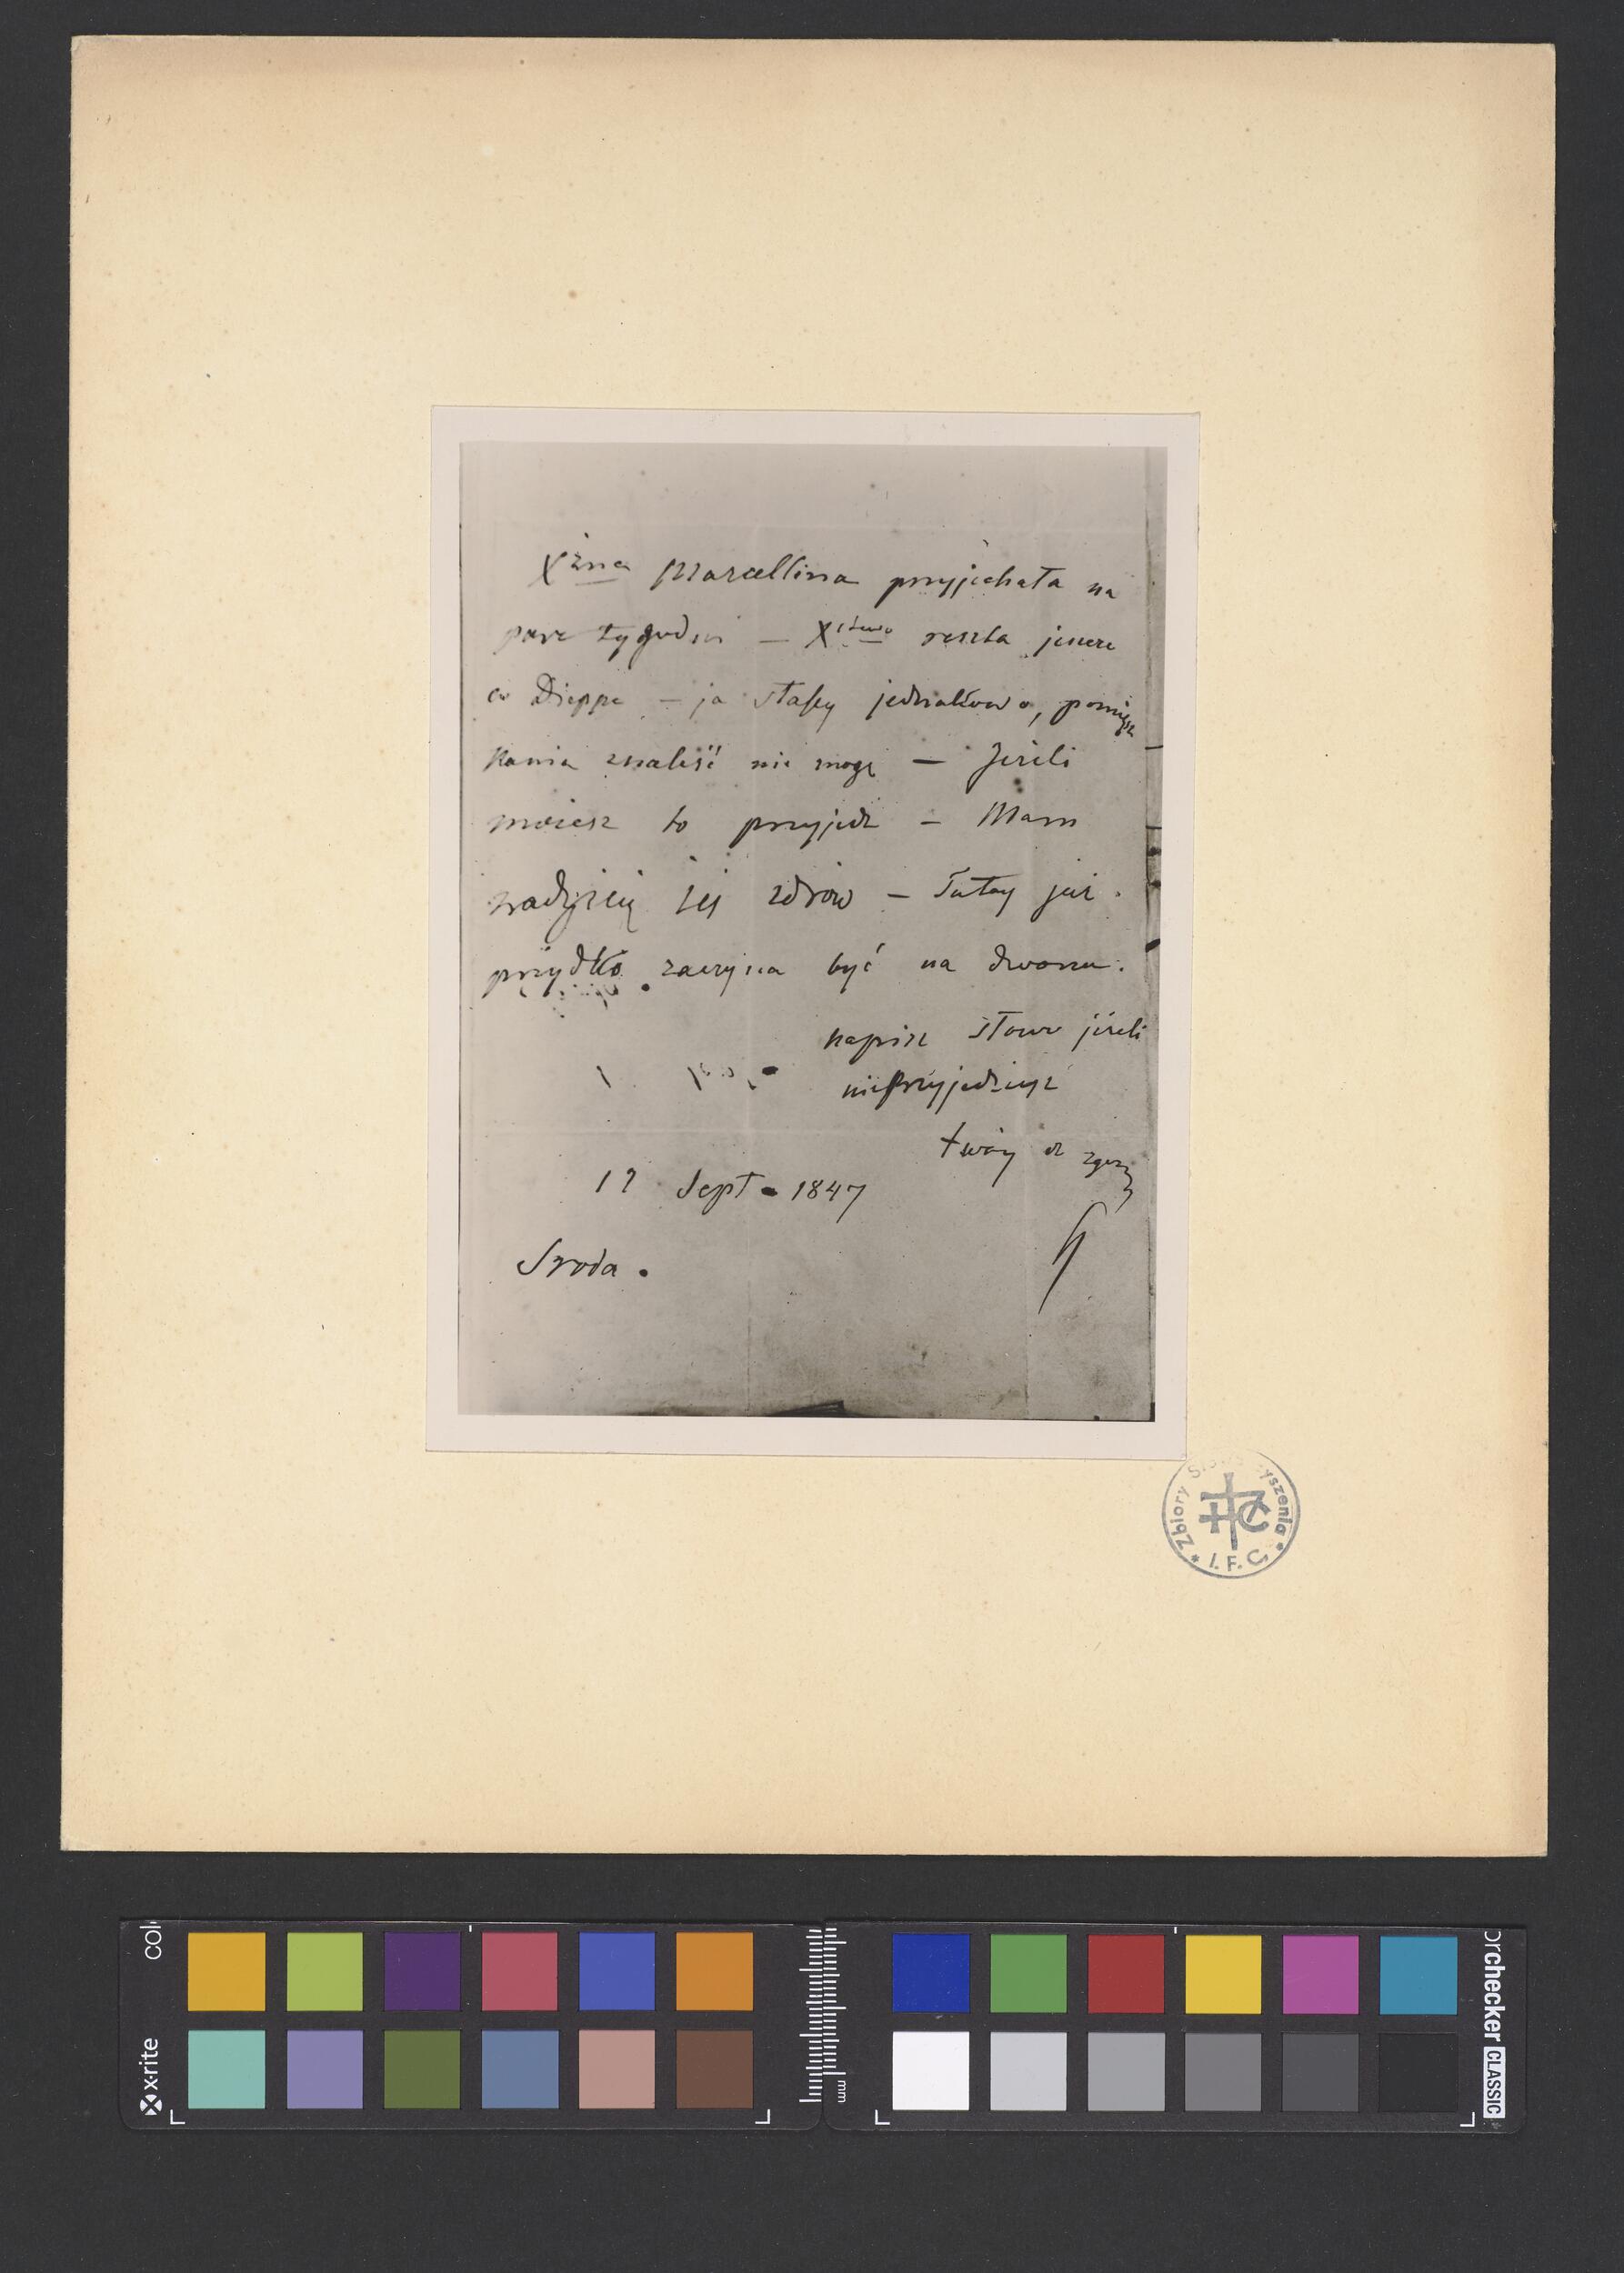 Xżna Marcellina przyjechała na
parę tygodni — Xstwo reszta jeszcze
w Dieppe — ja słaby jednakowo, pomięsz
kania znaleść nie mogę — Jeżeli
możesz to przyjedź — Mam
nadzieię żeś zdrów — Tutay już
przydko zaczyna być na dworze.
napisz słowo jeżeli
nieprzyjedziesz
twóy
Sept 1847
Sroda.
Zbiory
I. F. C.
x·rite
mm
CLASSIC